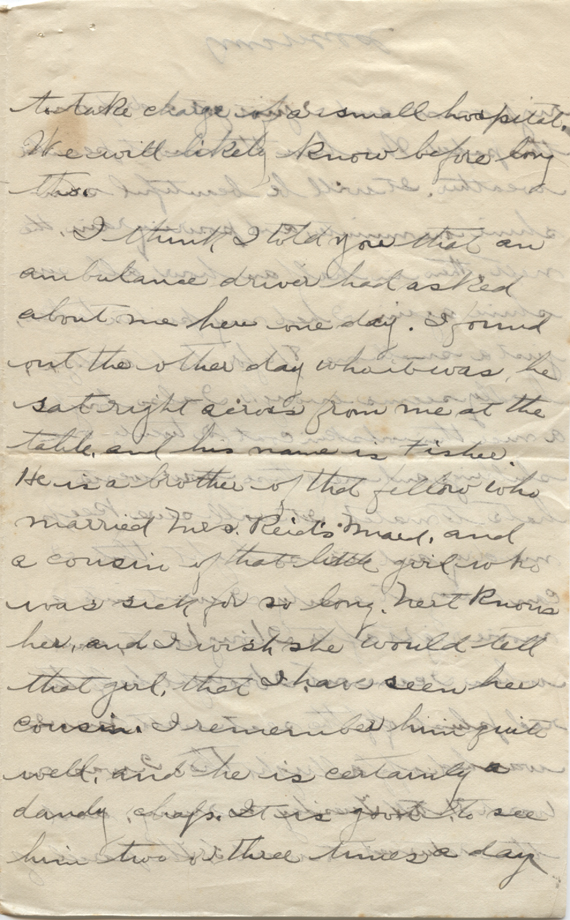 to take charge of a small hospital.
We will likely know before long
tho.
I think I told you that an
ambulance driver had asked
about me here one day. I found
out the other day who it was, he
sat right across from me at the
table, and his name is Fisher.
He is a brother of that fellow who
married Mrs. Reid's Maud, and
a cousin of that little girl who
was sick for so long. Nert knows
her, and I wish she would tell
that girl, that I have seen her
cousin. I remember him quite
well, and he is certainly a
dandy chap. It is good to see
him two or three times a day